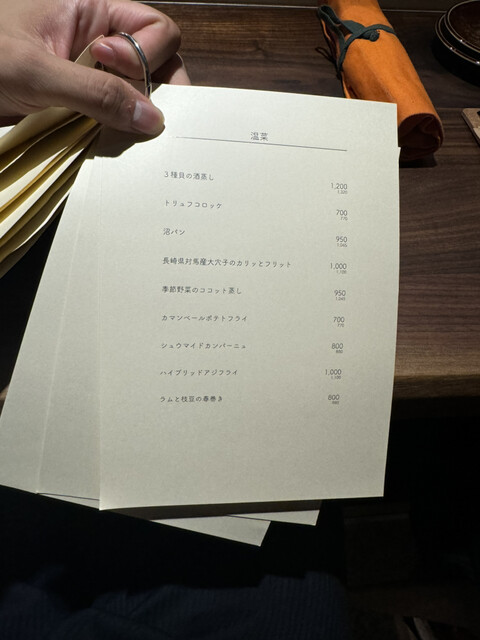 温菜
3種貝の酒蒸し
1,200
1,320
トリュフコロッケ
700
770
沼パン
950
1,045
長崎県対馬産大穴子のカリッとフリット
1,000
1,100
季節野菜のココット蒸し
950
1,045
カマンベールポテトフライ
700
770
シュウマイドカンパーニュ
800
880
ハイブリッドアジフライ
1,000
1,100
ラムと枝豆の春巻き
800
880